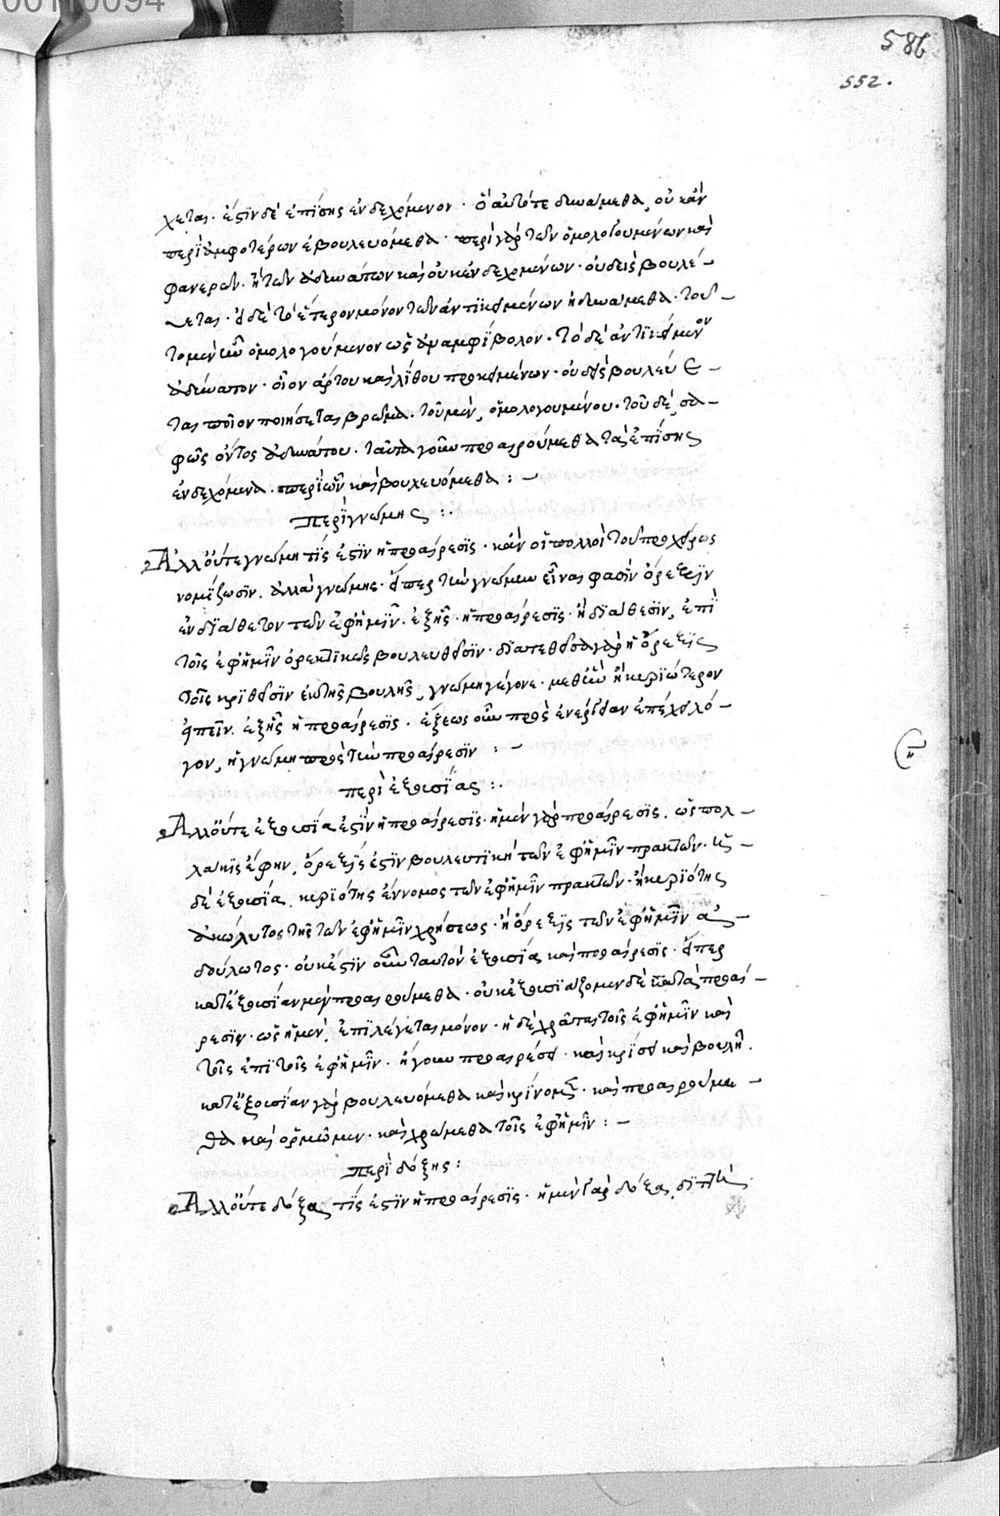 00110094
586
552.
χεται· ἔστιν δὲ ἐπίσης ἐνδεχόμενον· ὃ αὐτό τε δυνάμεθα, οὐ κἂν
περὶ ἀμφοτέρων ἐβουλευόμεθα· περὶ γὰρ τῶν ὁμολογουμένων καὶ
φανερῶν· ἢ τῶν ἀδυνάτων καὶ οὐκ ἐνδεχομένων· οὐδεὶς βουλεύ-
εται· εἰ δὲ τὸ ἕτερον μόνον τῶν ἀντικειμένων ἠδυνάμεθα· τοῦ-
το μὲν ὂν ὁμολογούμενον ὡς ἀναμφίβολον· τὸ δὲ ἀντικείμενον
ἀδύνατον· οἷον ἄρτου καὶ λίθου προκειμένων· οὐδεὶς βουλεύε-
ται ποῖον ποιήσεται βρῶμα· τοῦ μὲν, ὁμολογουμένου· τοῦ δὲ, σα-
φῶς ὄντος ἀδυνάτου· ταῦτα γοῦν προαιρούμεθα τὰ ἐπίσης
ἐνδεχόμενα· περὶ ὧν καὶ βουλευόμεθα :-
περὶ γνώμης :·
Ἀλλ' οὔτε γνώμη τίς ἐστϊν ἡ προαίρεσϊς· κἂν οἱ πολλοὶ τοῦ προχείρως
νομίζωσϊν· ἀλλὰ γνώμης· εἴπερ τὴν γνώμην εἶναι φασὶν ὄρεξϊν
ἐνδϊάθετον τῶν ἐφ' ἡμῖν· ἐξ ἧς· ἡ προαίρεσϊς· ἢ δϊάθεσϊν, ἐπὶ
τοῖς ἐφ' ἡμῖν ὀρεκτϊκῶς βουλευθεῖσϊν· δϊατεθεῖσα γὰρ ἡ ὄρεξϊς
τοῖς κρϊθεῖσϊν ἐκ τῆς βουλῆς, γνώμη γέγονε· μεθ' ἣν ἢ κυρϊώτερον
εἰπεῖν· ἐξ ἧς ἡ προαίρεσϊς· ἕξεως οὖν πρὸς ἐνέργειαν ἐπέχει λό-
γον, ἡ γνώμη πρὸς τὴν προαίρεσϊν :-
περὶ ἐξουσίας :·
Ἀλλ' οὔτε ἐξουσία ἐστὶν ἡ προαίρεσϊς· ἡ μὲν γὰρ προαίρεσϊς, ὡς πολ-
λάκις ἔφην, ὄρεξϊς ἐστὶν βουλευτϊκὴ τῶν ἐφ' ἡμῖν πρακτῶν· ἡ
δὲ ἐξουσία, κυρϊότης ἔννομος τῶν ἐφ' ἡμῖν πρακτῶν· ἢ κυρϊότης
ἀκώλυτος τῆς τῶν ἐφ' ἡμῖν χρήσεως· ἢ ὄρεξϊς τῶν ἐφ' ἡμῖν ἀ-
δούλωτος· οὐκ ἔστϊν οὖν ταυτὸν ἐξουσία καὶ προαίρεσϊς· εἴπερ
κατ' ἐξουσίαν μὲν προαιρούμεθα· οὐκ ἐξουσϊάζομεν δὲ κατὰ προαί-
ρεσϊν· ὡς ἡ μὲν, ἐπιλέγεται μόνον· ἡ δὲ χρᾶται τοῖς ἐφ' ἡμῖν καὶ
τοῖς ἐπὶ τοῖς ἐφ' ἡμῖν· ἤγουν προαιρέσει· καὶ κρίσει καὶ βουλῇ·
κατ' ἐξουσίαν γὰρ βουλευόμεθα καὶ κρίνομεν· καὶ προαιρούμε-
θα καὶ ὁρμῶμεν· καὶ χρώμεθα τοῖς ἐφ' ἡμῖν :-
περὶ δόξης :
Ἀλλ' οὔτε δόξα τίς ἐστϊν ἡ προαίρεσϊς· ἡ μὲν γὰρ δόξα, διττὴ